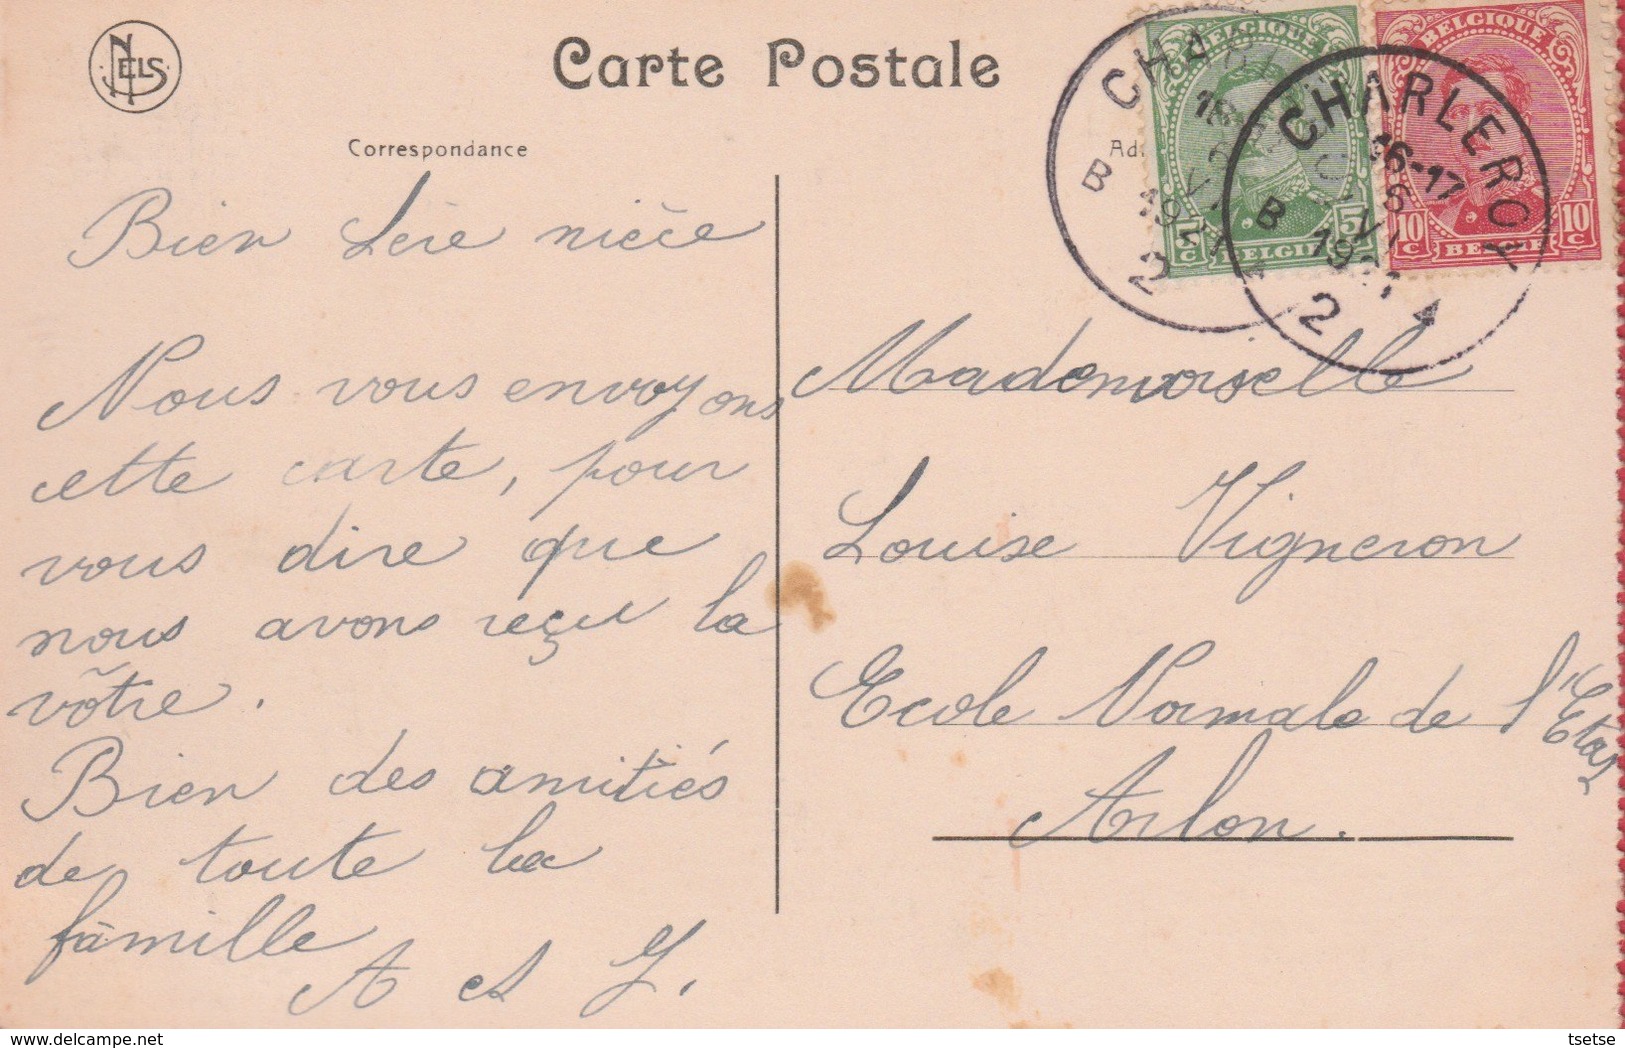 NELS
Carte Postale
Correspondance
BELGIQUE
5 C
BELGIE
BELGIQUE
10 C 10 C
BELGIE
CHARLEROY
16-17
6
VI
B 2
Bien chère nièce
Nous vous envoyons
cette carte, pour
vous dire que
nous avons reçu la
vôtre.
Bien des amitiés
de toute la
famille
Mademoiselle
Louise Vigneron
Ecole Normale de l'Etat
Arlon.
tsetse